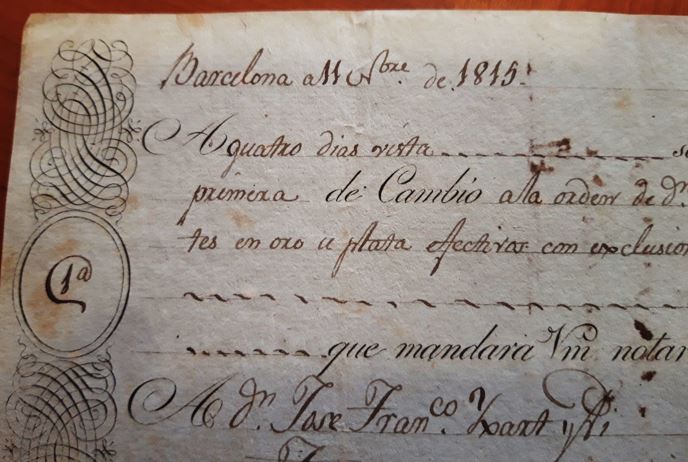 Barcelona a 11 Nbre. de 1815.
A quatro dias vista
primera de Cambio a la orden de dn.
tes en oro u plata efectivos con exclusion
1a
que mandará Vm notar
A dn. Jose Franco.